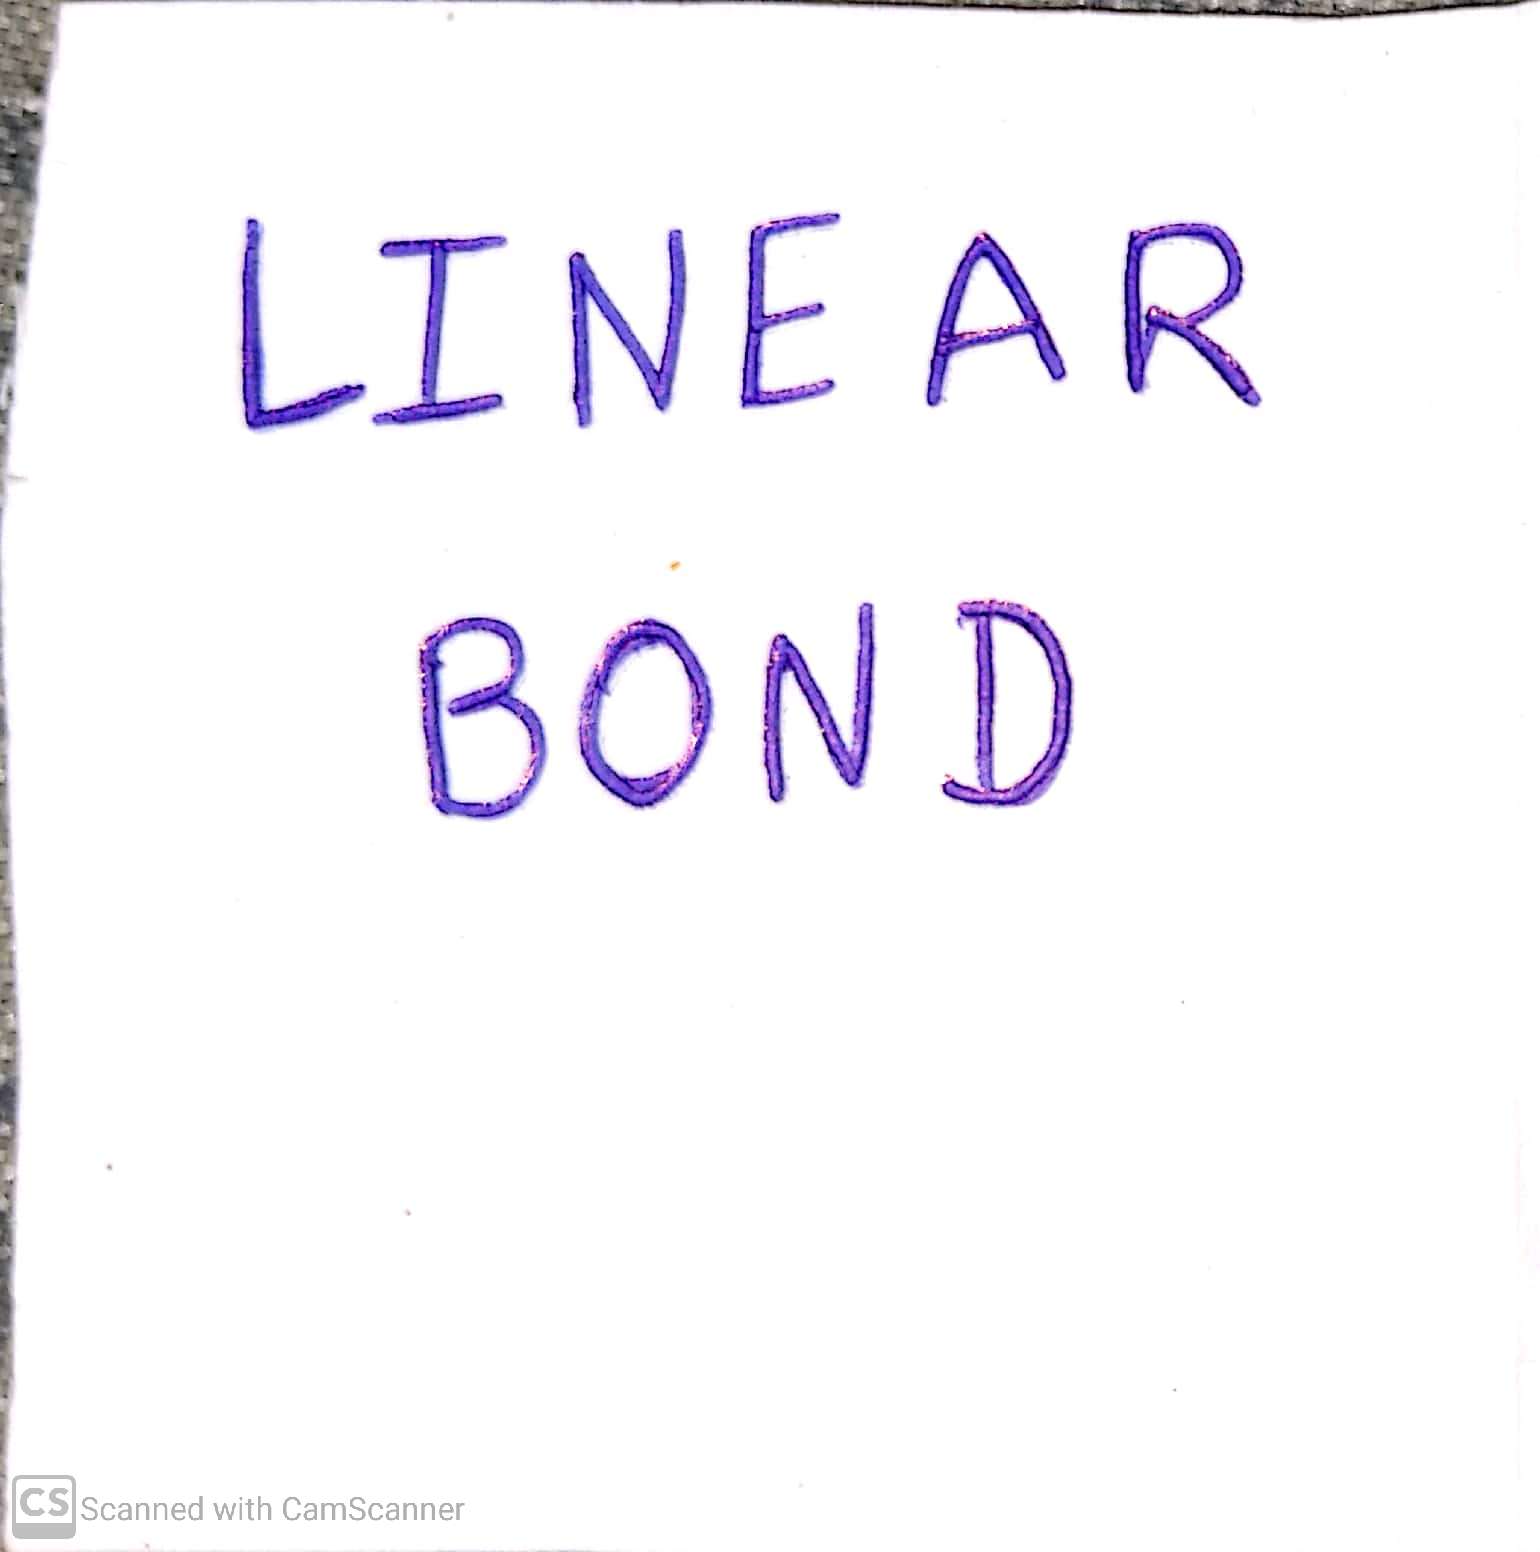 LINEAR
BOND
CS Scanned with CamScanner